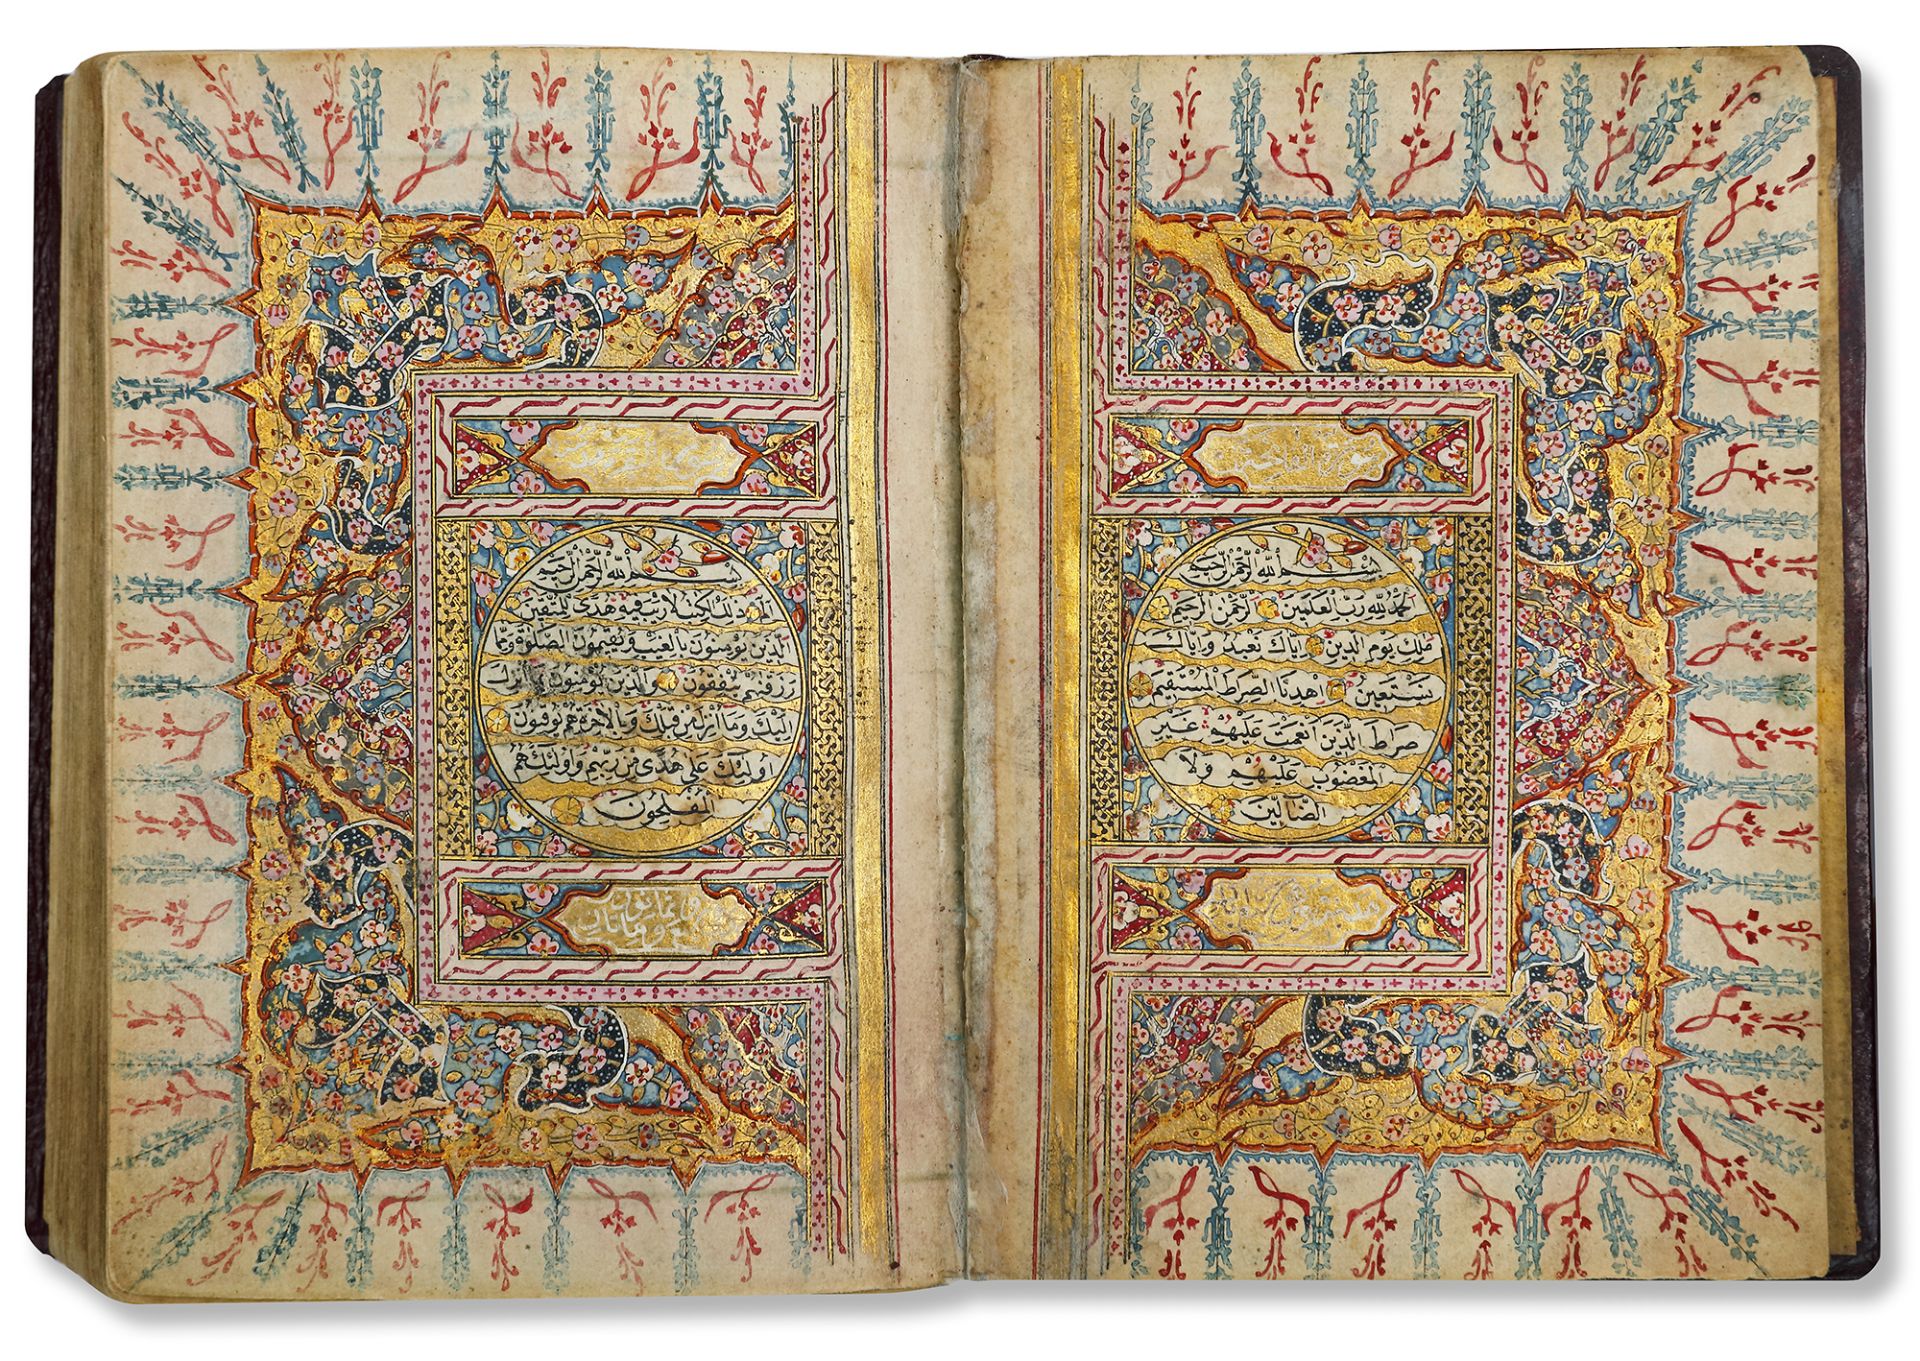 سورة الفاتحة
بِسْمِ اللّٰهِ الرَّحْمٰنِ الرَّحِيمِ
اَلْحَمْدُ لِلّٰهِ رَبِّ الْعٰلَمِينَ الرَّحْمٰنِ الرَّحِيمِ
مٰلِكِ يَوْمِ الدِّينِ اِيَّاكَ نَعْبُدُ وَاِيَّاكَ
نَسْتَعِينُ اِهْدِنَا الصِّرَاطَ الْمُسْتَقِيمَ
صِرَاطَ الَّذِينَ اَنْعَمْتَ عَلَيْهِمْ غَيْرِ
الْمَغْضُوبِ عَلَيْهِمْ وَلَا
الضَّالِّينَ
بِسْمِ اللّٰهِ الرَّحْمٰنِ الرَّحِيمِ
الٓمٓ ذٰلِكَ الْكِتٰبُ لَا رَيْبَ فِيهِ هُدًى لِلْمُتَّقِينَ
الَّذِينَ يُؤْمِنُونَ بِالْغَيْبِ وَيُقِيمُونَ الصَّلٰوةَ وَمِمَّا
رَزَقْنٰهُمْ يُنْفِقُونَ وَالَّذِينَ يُؤْمِنُونَ بِمَا اُنْزِلَ
اِلَيْكَ وَمَا اُنْزِلَ مِنْ قَبْلِكَ وَبِالْاٰخِرَةِ هُمْ يُوقِنُونَ
اُولٰئِكَ عَلٰى هُدًى مِنْ رَبِّهِمْ وَاُولٰئِكَ هُمُ
الْمُفْلِحُونَ